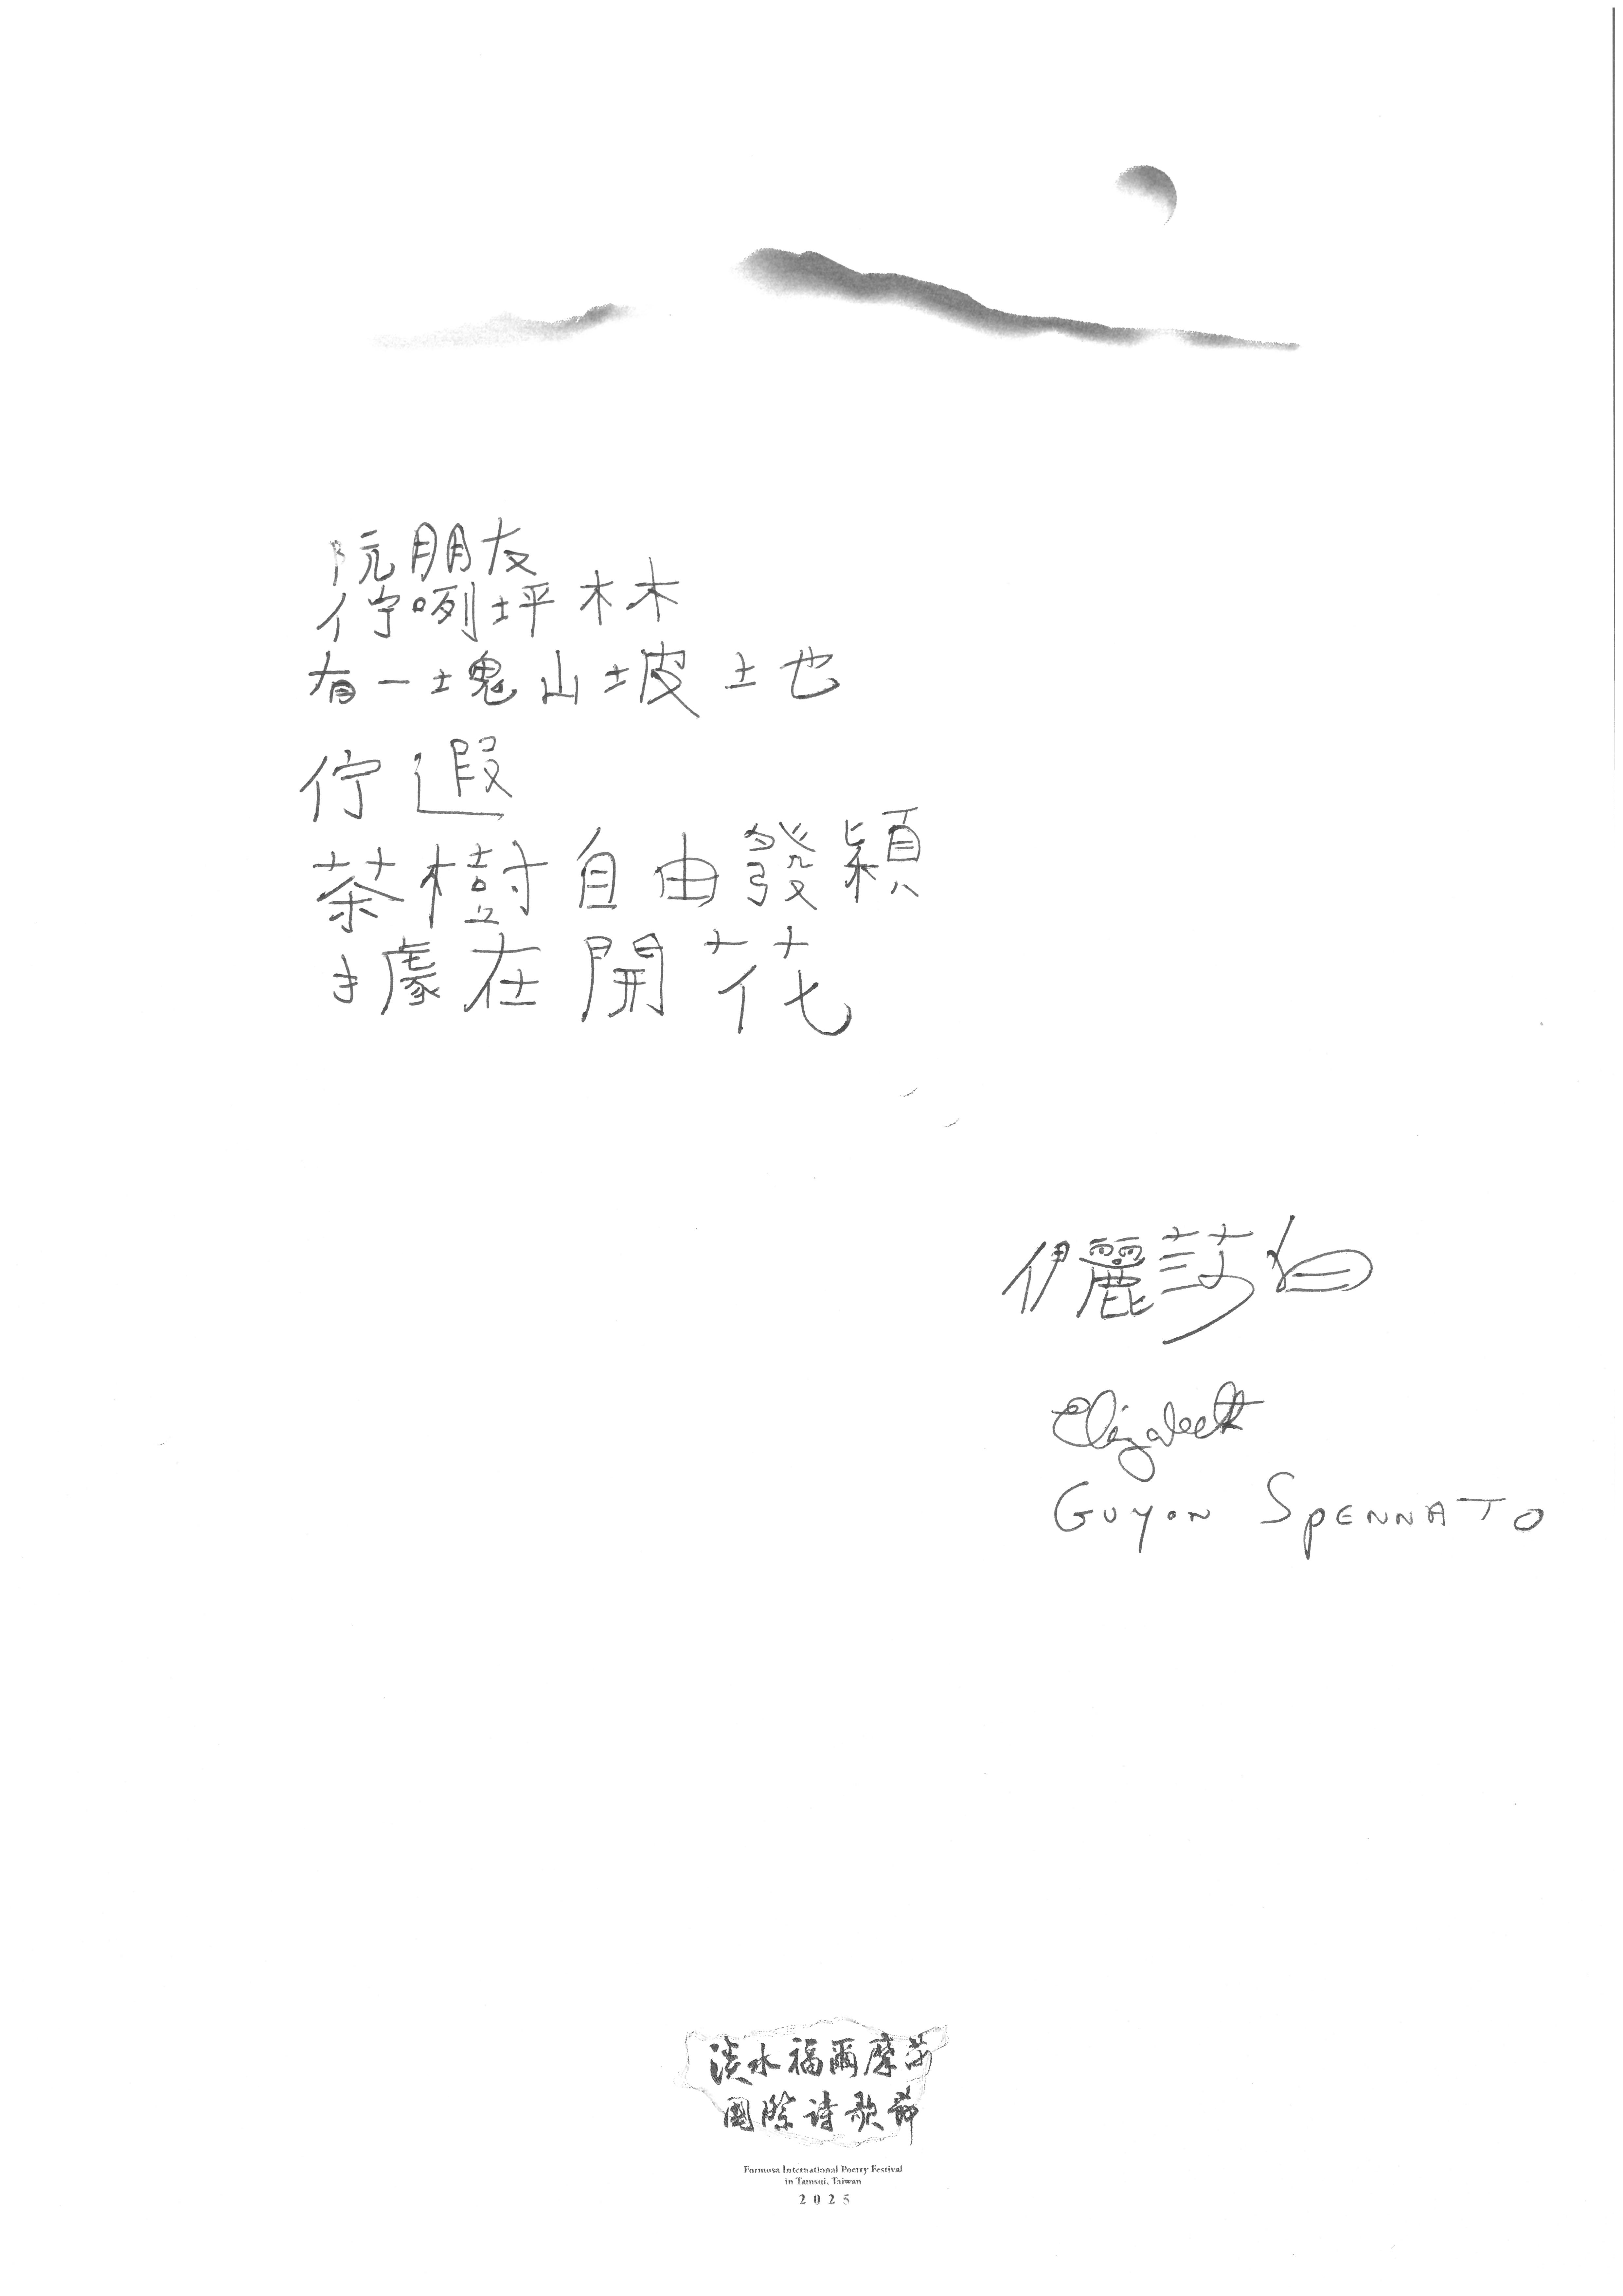 阮朋友
佇咧坪林
有一塊山坡土地
佇遐
茶樹自由發穎
據在開花
伊麗莎白
Elizabeth
GUYON SPENNATO
淡水福爾摩莎
國際詩歌節
Formosa International Poetry Festival
in Tamsui, Taiwan
2025